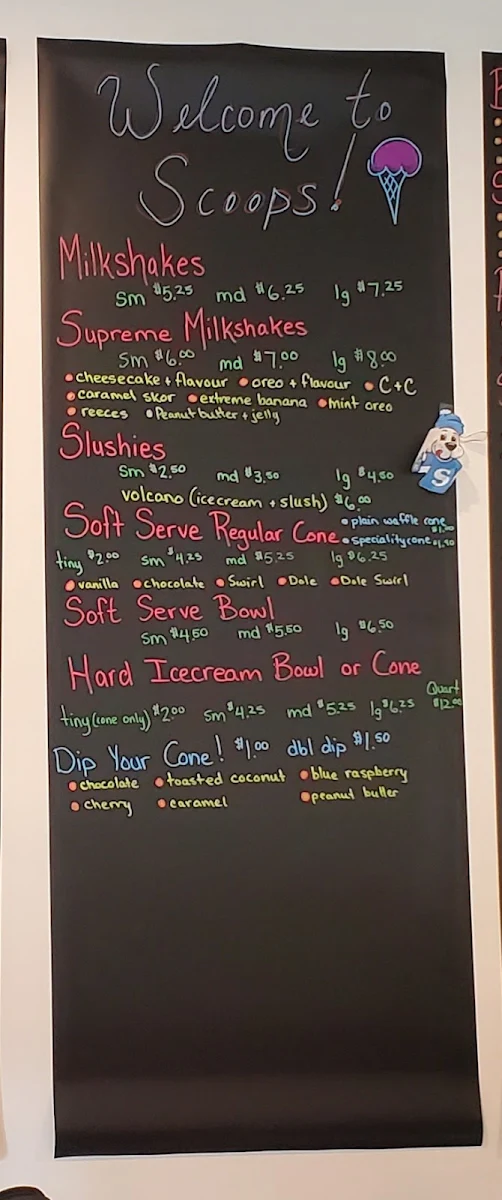 Welcome to
Scoops!
Milkshakes
Sm $5.25 md $6.25 lg $7.25
Supreme Milkshakes
Sm $6.00 md $7.00 lg $8.00
cheesecake + flavour oreo + flavour C+C
caramel skor extreme banana mint oreo
reeces Peanut butter + jelly
Slushies
Sm $2.50 md $3.50 lg $4.50
volcano (icecream + slush) $6.00
Soft Serve Regular Cone
plain waffle cone $1.00
Speciality cone
tiny $2.00 sm $4.25 md $5.25 lg $6.25
vanilla chocolate Swirl Dole Dole Swirl
Soft Serve Bowl
Sm $4.50 md $5.50 lg $6.50
Hard Icecream Bowl or Cone
tiny (cone only) $2.00 Sm $4.25 md $5.25 lg $6.25 Quart $12.00
Dip Your Cone! $1.00 dbl dip $1.50
chocolate toasted coconut blue raspberry
cherry caramel peanut butter
S